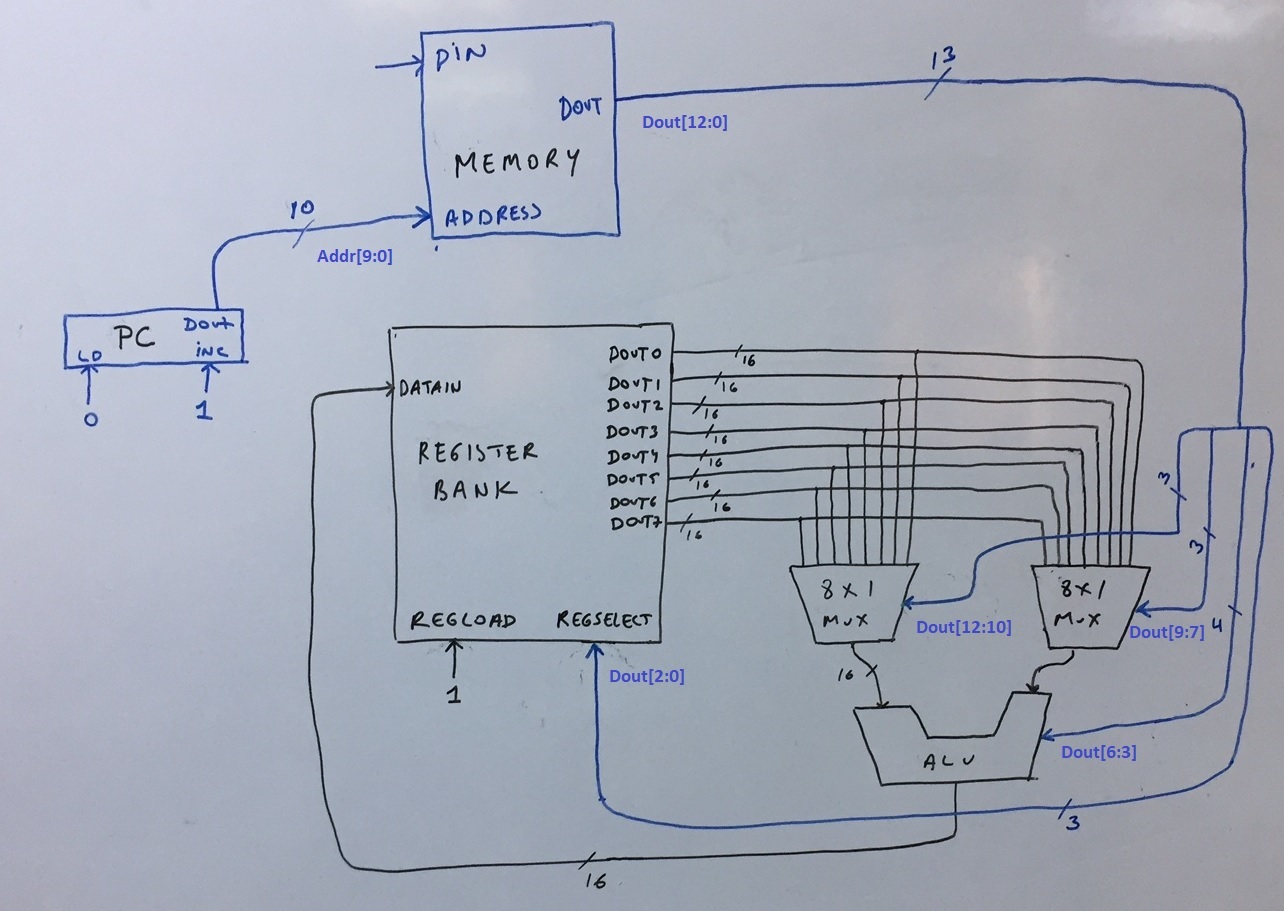 DIN
DOUT
MEMORY
ADDRESS
13
Dout[12:0]
10
Addr[9:0]
PC
DOUT
LD
INC
0
1
DATAIN
REGISTER
BANK
REGLOAD
REGSELECT
1
DOUT0
DOUT1
DOUT2
DOUT3
DOUT4
DOUT5
DOUT6
DOUT7
16
16
16
16
16
16
16
16
3
3
8x1
MUX
8x1
MUX
Dout[12:10]
Dout[9:7]
4
Dout[2:0]
16
ALU
Dout[6:3]
3
16